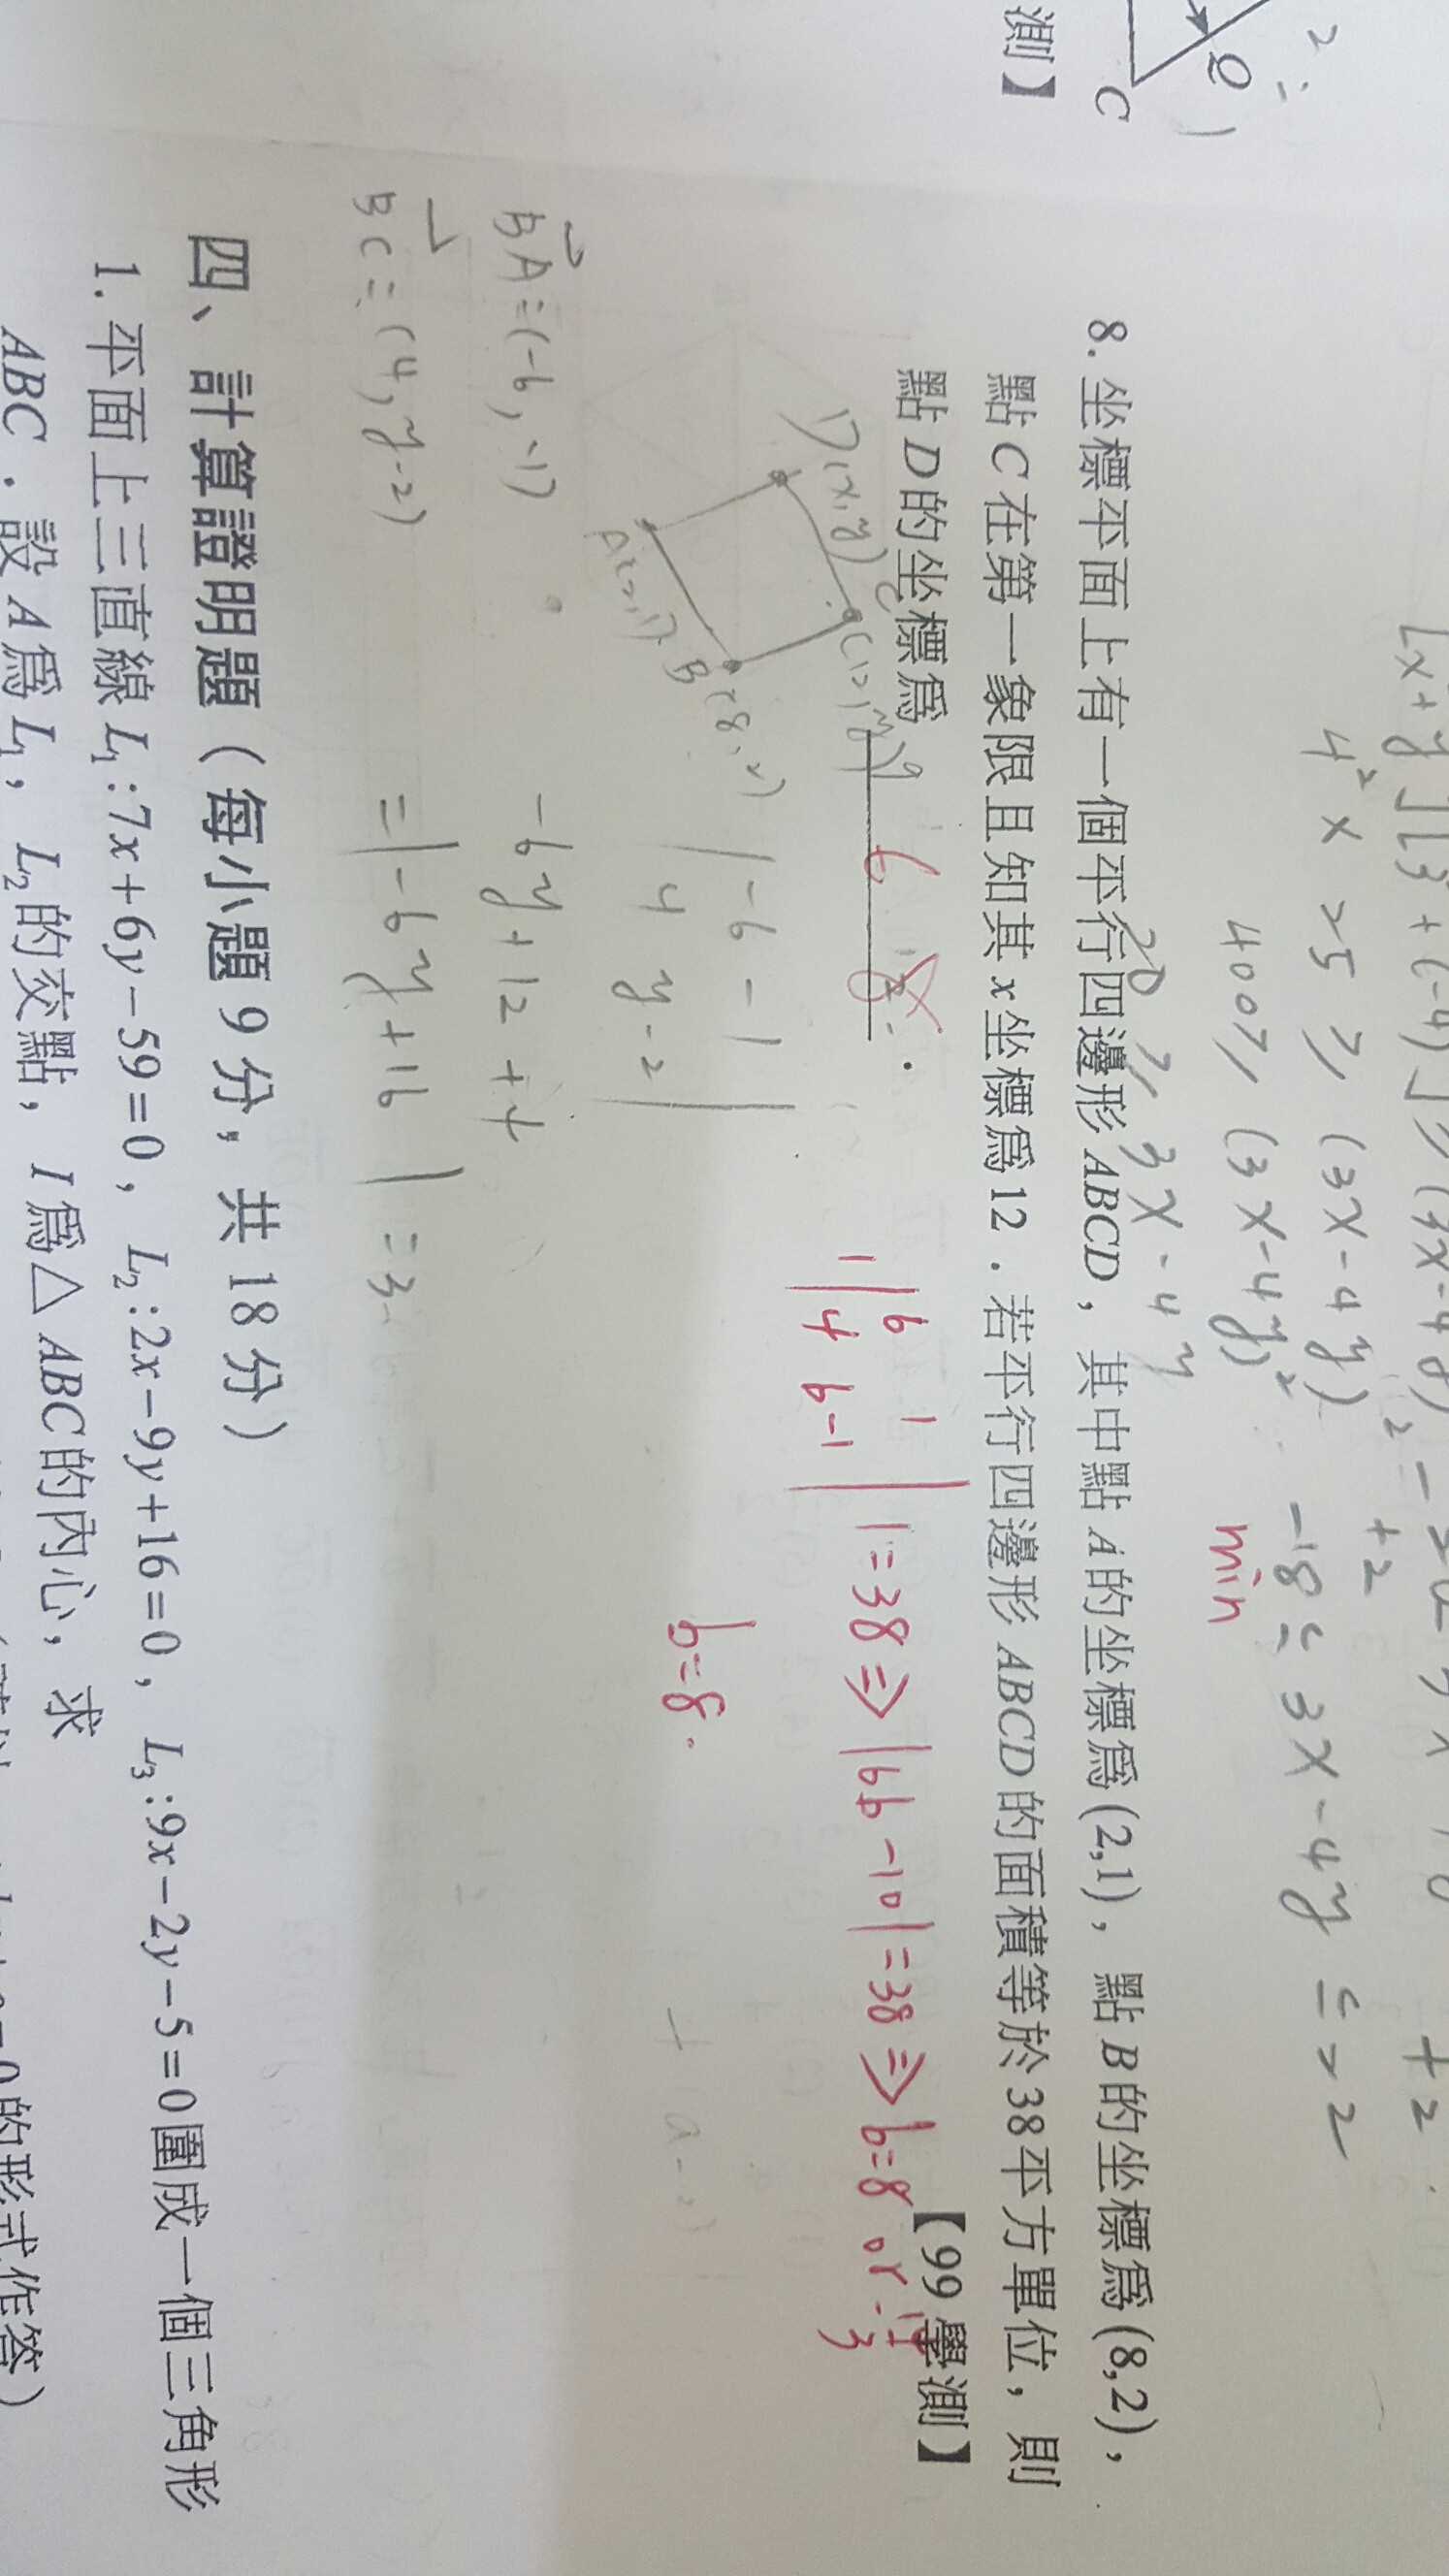 Q
C
測】
4² × 25 ≥ (3x-4y)²
400 ≥ (3x-4y)²
20 ≥ 3x-4y
+2
-18 ≤ 3x-4y ≤ 22
min
8. 坐標平面上有一個平行四邊形 ABCD，其中點 A 的坐標爲 (2,1)，點 B 的坐標爲 (8,2)，
點 C 在第一象限且知其 x 坐標爲 12．若平行四邊形 ABCD 的面積等於 38 平方單位，則
點 D 的坐標爲
【99 學測】
D(x,y)
C(12,y)
B(8,2)
||6 1
4 b-1||=38 ⇒ |6b-10|=38 ⇒ b=8 or -14/3
b=8.
BA=(-6,-1)
BC=(4,y-2)
|-6 -1
4 y-2|
-6y+12+4
=|-6y+16|=3
四、計算證明題（每小題 9 分，共 18 分）
1. 平面上三直線 L₁:7x+6y-59=0，L₂:2x-9y+16=0，L₃:9x-2y-5=0圍成一個三角形
ABC．設 A 爲 L₁，L₂的交點，I 爲△ABC的內心，求
的形式作答）